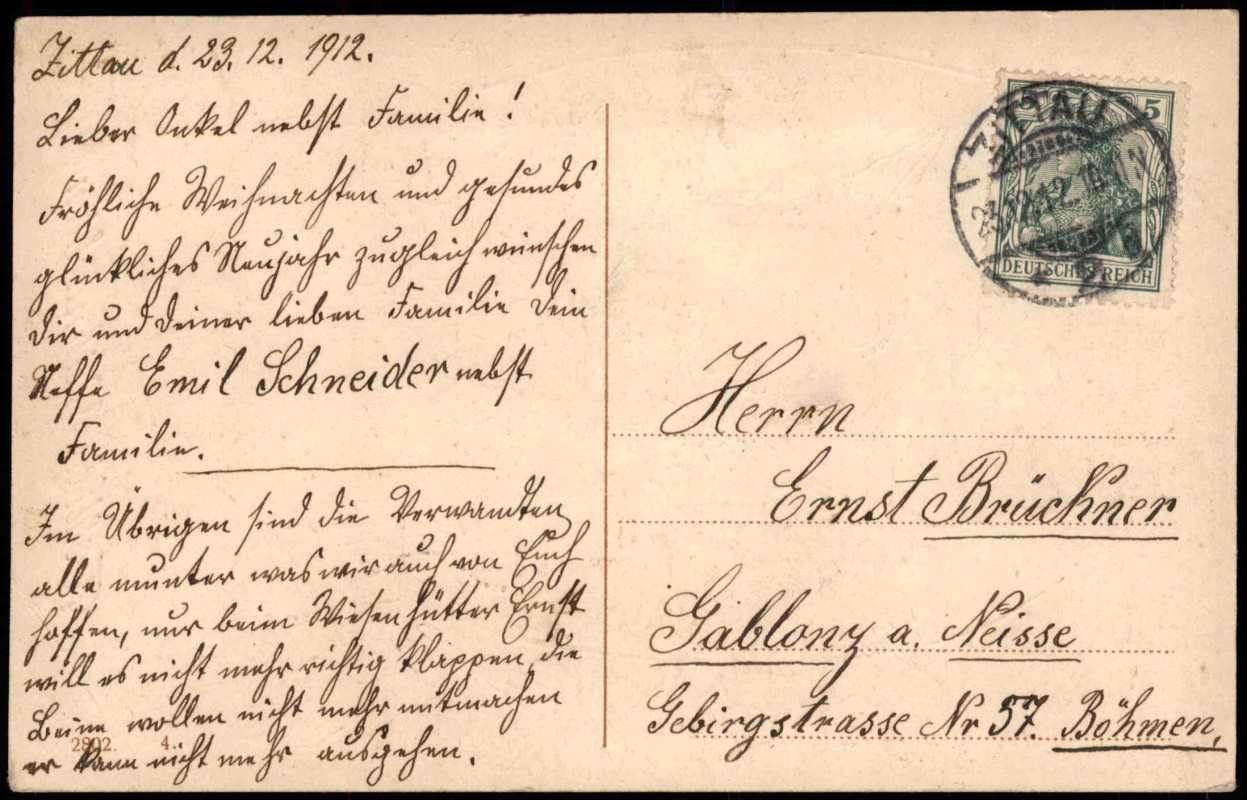 Zittau d. 23. 12. 1912.
Lieber Onkel nebst Familie!
Fröhliche Weihnachten und gesundes
glückliches Neujahr zugleich wünschen
Dir und Deiner lieben Familie Dein
Neffe Emil Schneider nebst
Familie.
Im Übrigen sind die Verwandten
alle munter was wir auch von Euch
hoffen, nur beim Wiesenhütter Ernst
will es nicht mehr richtig klappen, die
Beine wollen nicht mehr mitmachen
er kann nicht mehr ausgehen.
2892. 4.
5 5
ZITTAU
12.12.
2
DEUTSCHES REICH
Herrn
Ernst Brückner
Gablonz a. Neisse
Gebirgstrasse Nr 57. Böhmen,